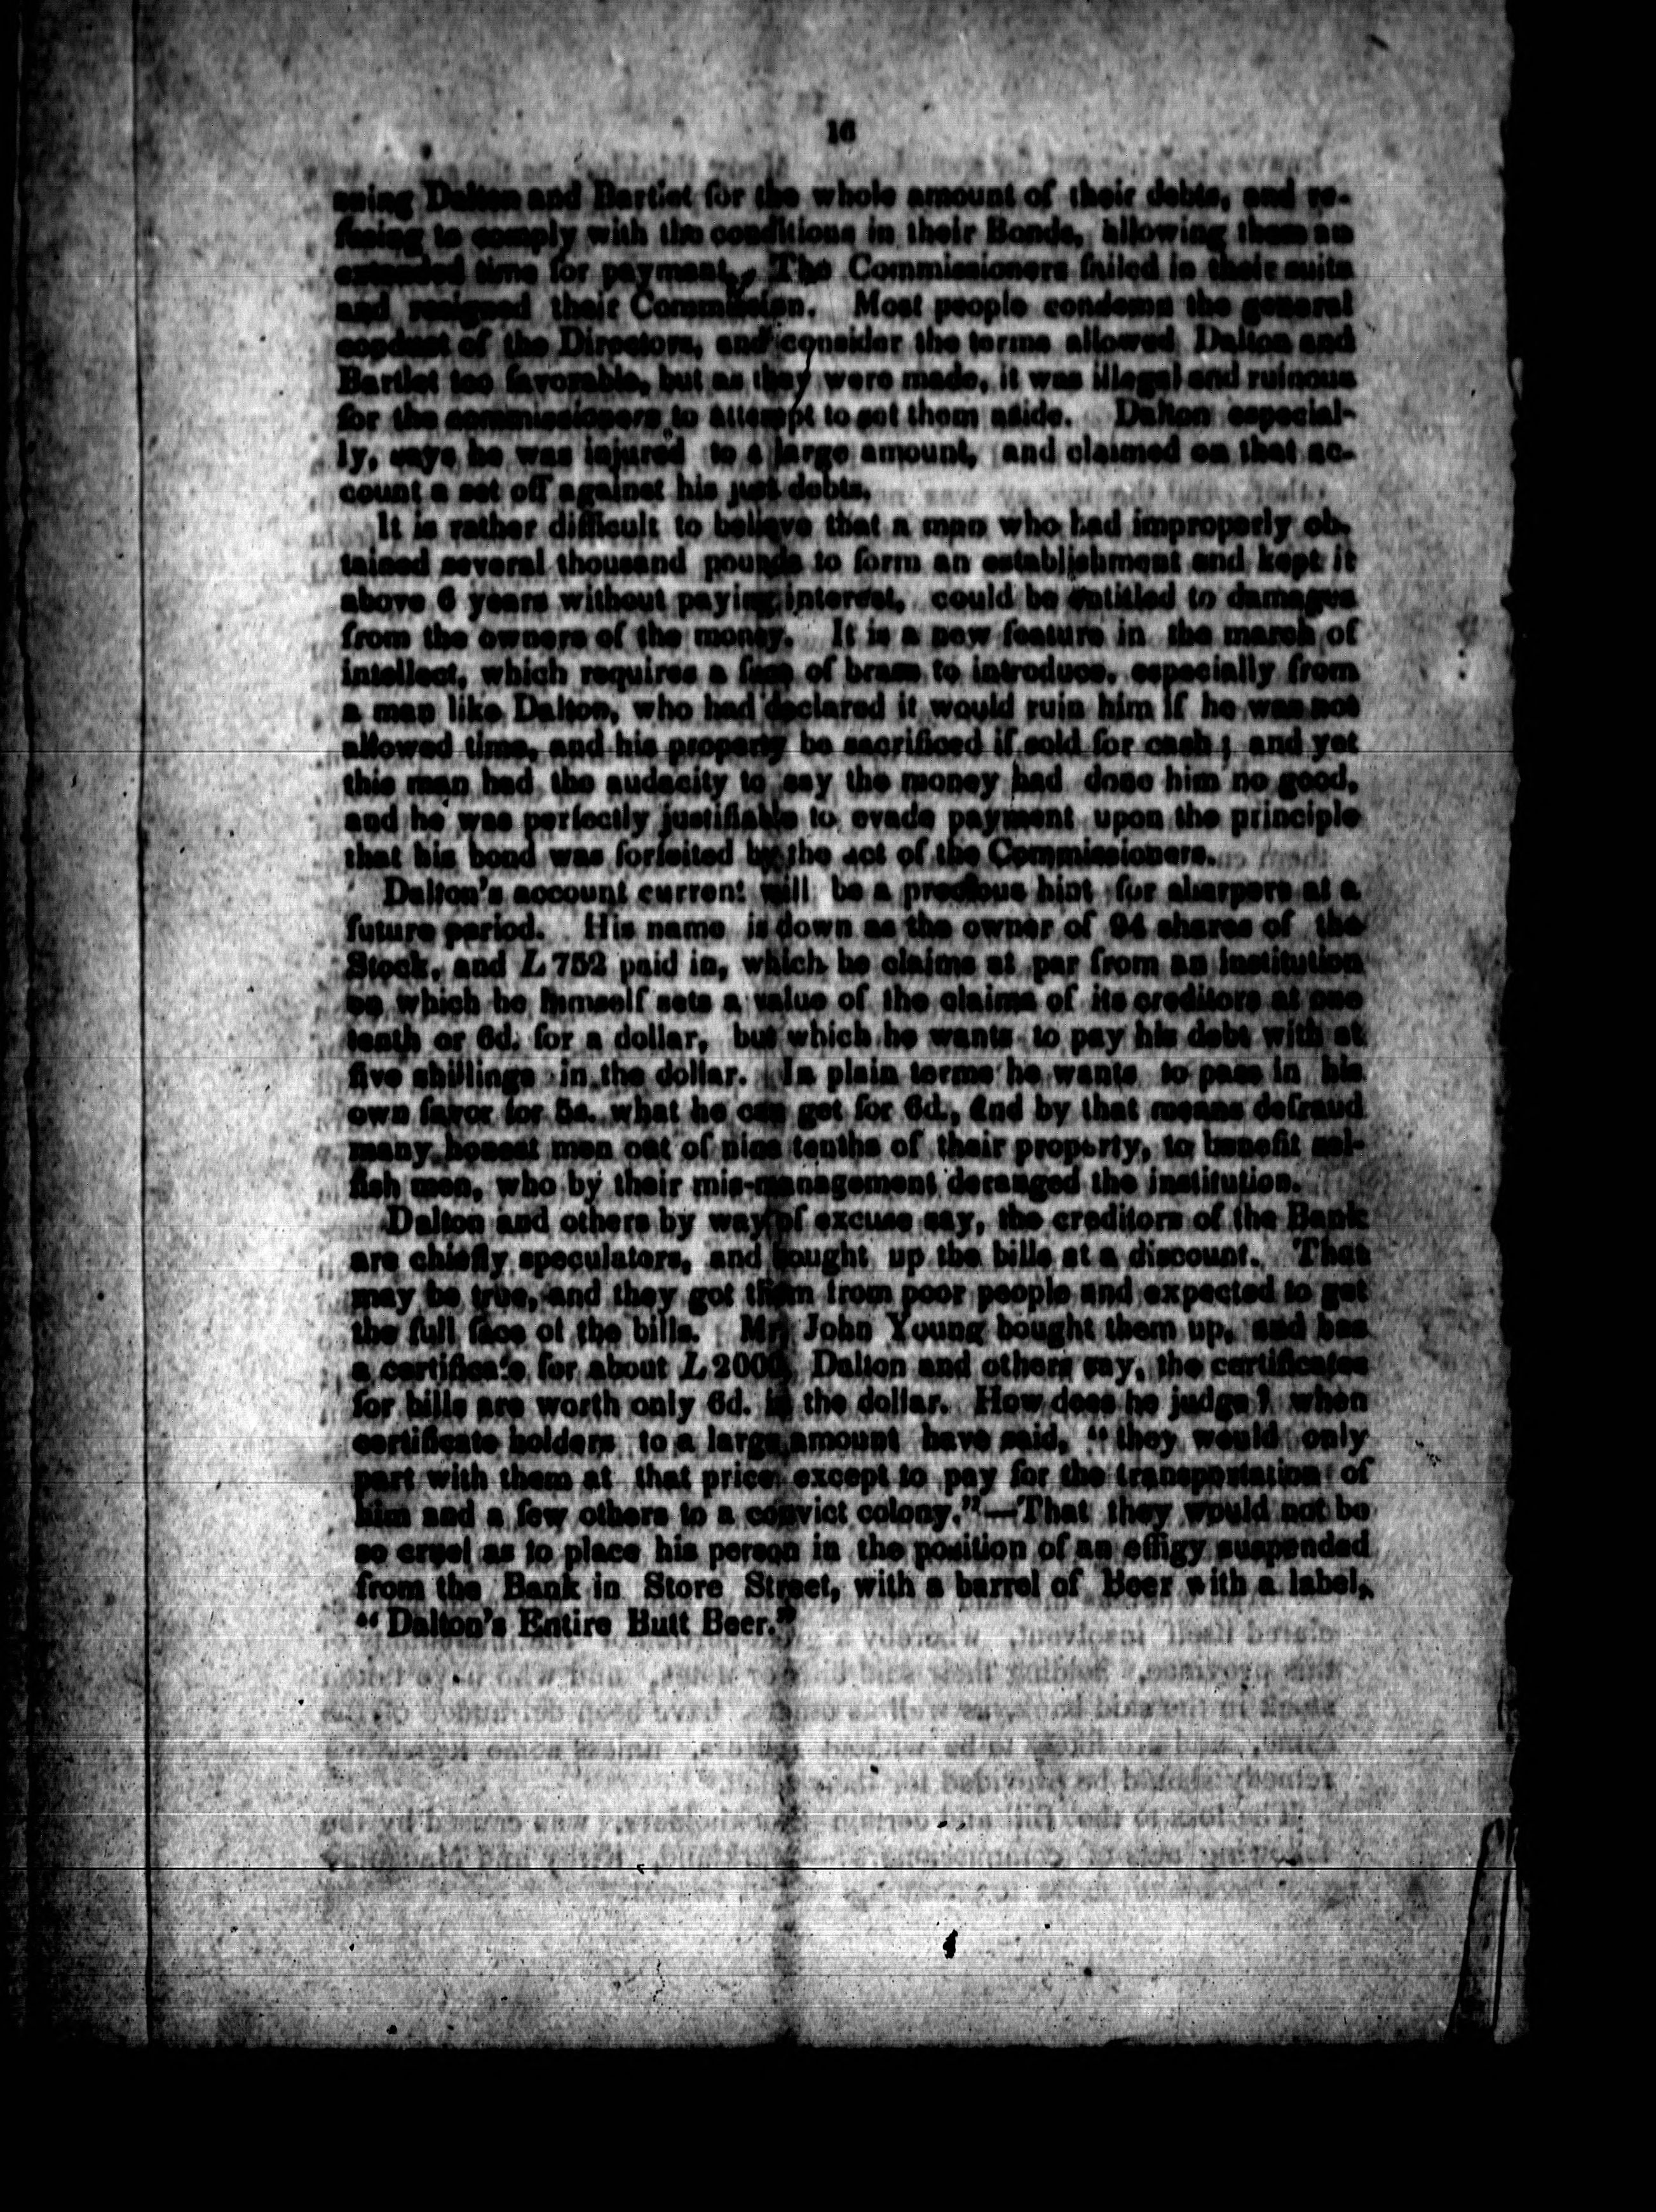 16
suing Dalton and Bartlet for the whole amount of their debts, and re-
fusing to comply with the conditions in their Bonds, allowing them an
extended time for payment. The Commissioners failed in their suits
and resigned their Commission. Most people condemn the general
conduct of the Directors, and consider the terms allowed Dalton and
Bartlet too favorable, but as they were made, it was illegal and ruinous
for the commissioners to attempt to set them aside. Dalton especial-
ly, says he was injured to a large amount, and claimed on that ac-
count a set off against his just debts.
It is rather difficult to believe that a man who had improperly ob-
tained several thousand pounds to form an establishment and kept it
above 6 years without paying interest, could be entitled to damages
from the owners of the money. It is a new feature in the march of
intellect, which requires a face of brass to introduce, especially from
a man like Dalton, who had declared it would ruin him if he was not
allowed time, and his property be sacrificed if sold for cash; and yet
this man had the audacity to say the money had done him no good,
and he was perfectly justifiable to evade payment upon the principle
that his bond was forfeited by the act of the Commissioners.
Dalton's account current will be a precious hint for sharpers at a
future period. His name is down as the owner of 94 shares of the
Stock, and L752 paid in, which he claims at par from an institution
on which he himself sets a value of the claims of its creditors at one
tenth or 6d. for a dollar, but which he wants to pay his debt with at
five shillings in the dollar. In plain terms he wants to pass in his
own favor for 5s. what he can get for 6d., and by that means defraud
many honest men out of nine tenths of their property, to benefit sel-
fish men, who by their mis-management deranged the institution.
Dalton and others by way of excuse say, the creditors of the Bank
are chiefly speculators, and bought up the bills at a discount. That
may be true, and they got them from poor people and expected to get
the full face of the bills. Mr. John Young bought them up, and has
a certificate for about L2000. Dalton and others say, the certificates
for bills are worth only 6d. in the dollar. How does he judge? when
certificate holders to a large amount have said, "they would only
part with them at that price except to pay for the transportation of
him and a few others to a convict colony."—That they would not be
so cruel as to place his person in the position of an effigy suspended
from the Bank in Store Street, with a barrel of Beer with a label,
"Dalton's Entire Butt Beer."